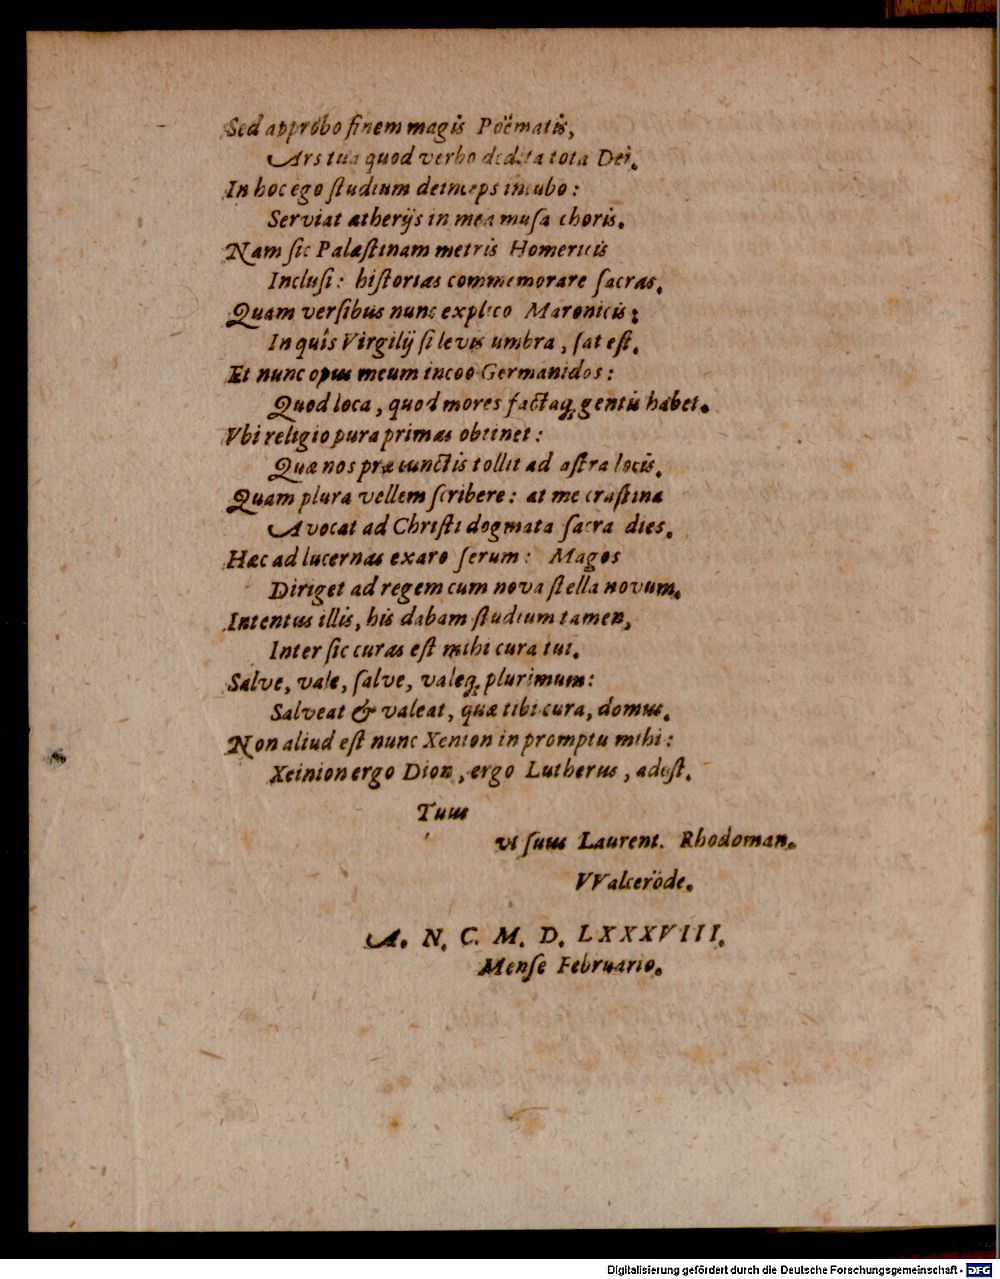 Sed approbo finem magis Poëmatis,
Ars tua quod verbo dedita tota Dei.
In hoc ego ſtudium deinceps incubo:
Serviat ætherijs in mea muſa choris.
Nam ſic Palæſtinam metris Homericis
Incluſi: hiſtorias commemorare ſacras.
Quam verſibus nunc explico Maronicis:
In quîs Virgilij ſi levis umbra, ſat eſt.
Et nunc opus meum incoo Germanidos:
Quod loca, quod mores factaq; gentis habet.
Vbi religio pura primas obtinet:
Quæ nos præ cunctis tollit ad aſtra locis.
Quam plura vellem ſcribere: at me craſtina
Avocat ad Chriſti dogmata ſacra dies.
Hæc ad lucernas exaro ſerum: Magos
Diriget ad regem cum nova ſtella novum.
Intentus illis, his dabam ſtudium tamen,
Inter ſic curas eſt mihi cura tui.
Salve, vale, ſalve, valeq; plurimum:
Salveat & valeat, quæ tibi cura, domus.
Non aliud eſt nunc Xenion in promptu mihi:
Xeinion ergo Dion, ergo Lutherus, adeſt.
Tuus
vt ſuus Laurent. Rhodoman.
VValceröde.
A. N. C. M. D. LXXXVIII.
Menſe Februario.
Digitalisierung gefördert durch die Deutsche Forschungsgemeinschaft - DFG